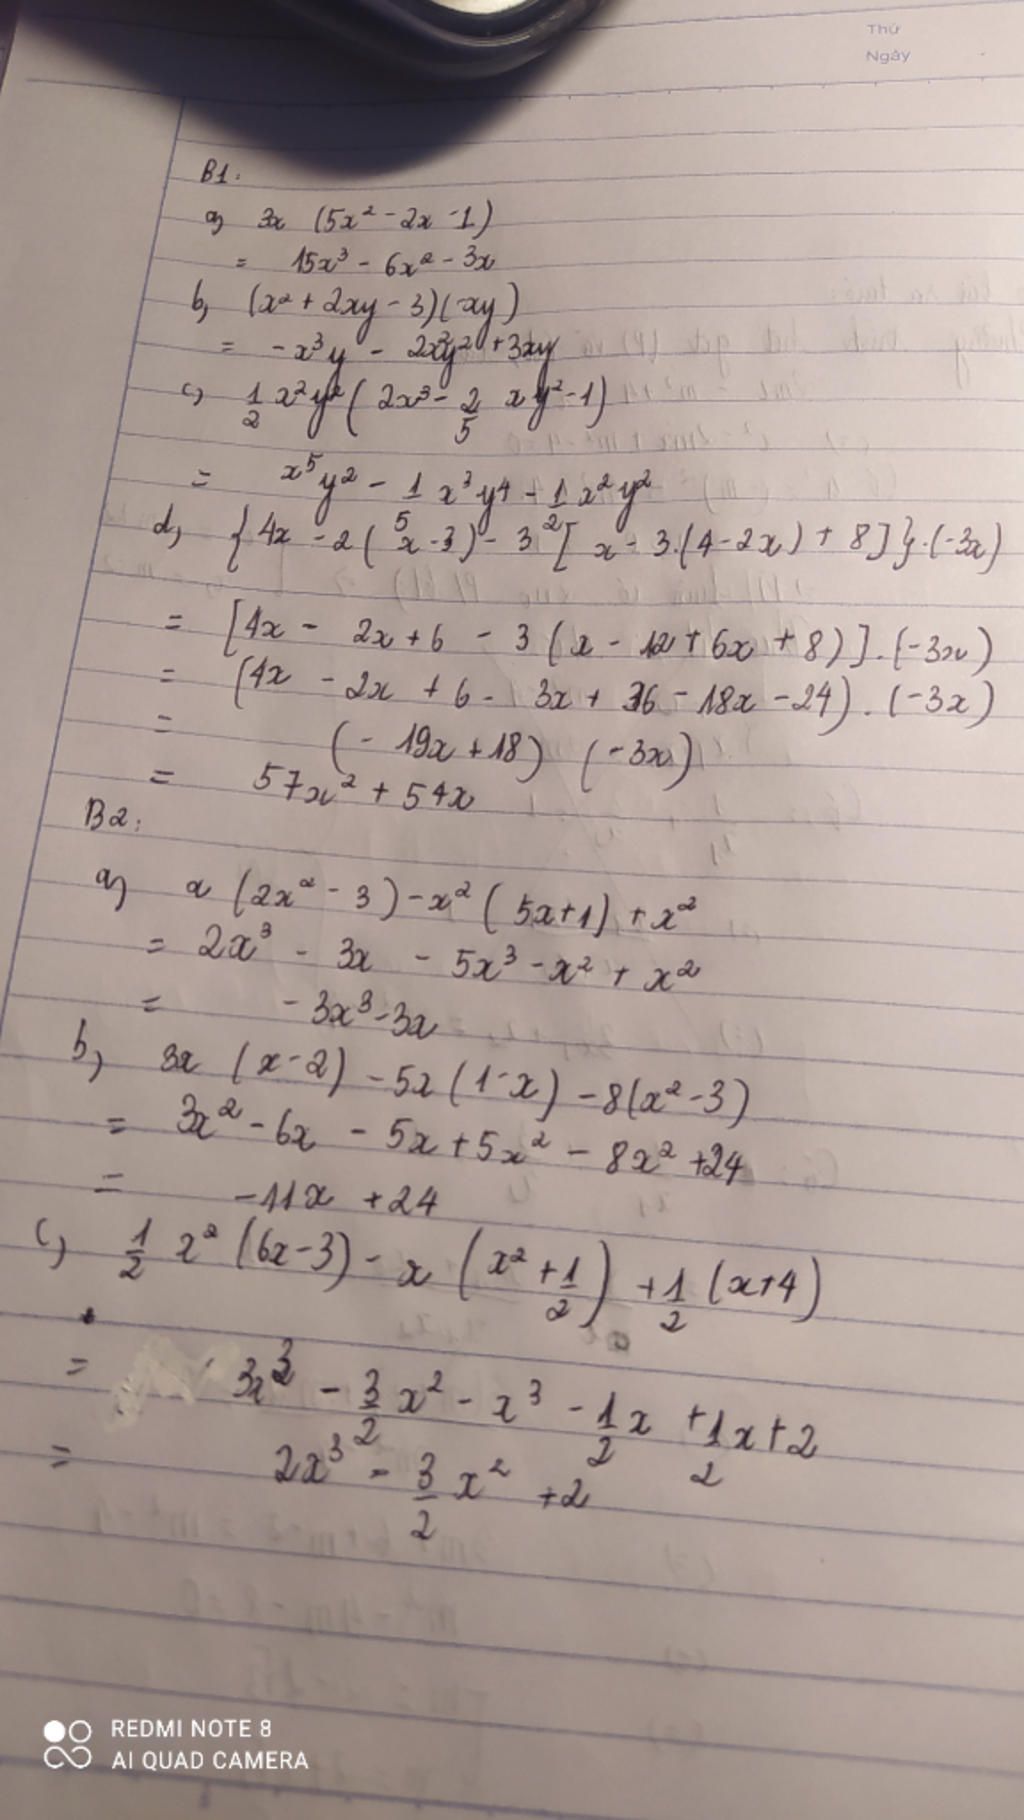 Thứ
Ngày
B1:
a, 3x (5x² - 2x - 1)
= 15x³ - 6x² - 3x
b, (x² + 2xy - 3)(-xy)
= -x³y - 2x²y² + 3xy
c, 1/2 x²y² ( 2x³ - 2/5 xy² - 1)
= x⁵y² - 1/5 x³y⁴ - 1/2 x²y²
d, { 4x - 2 ( x - 3) - 3 [ x - 3.(4 - 2x) + 8 ] } . (-3x)
= [4x - 2x + 6 - 3 (x - 12 + 6x + 8)] . (-3x)
= (4x - 2x + 6 - 3x + 36 - 18x - 24) . (-3x)
= (- 19x + 18) (-3x)
= 57x² + 54x
B2:
a, x (2x² - 3) - x² ( 5x + 1) + x²
= 2x³ - 3x - 5x³ - x² + x²
= - 3x³ - 3x
b, 3x (x - 2) - 5x (1 - x) - 8(x² - 3)
= 3x² - 6x - 5x + 5x² - 8x² + 24
= -11x + 24
c, 1/2 x² (6x - 3) - x (x² + 1/2) + 1/2 (x + 4)
= 3x³ - 3/2 x² - x³ - 1/2 x + 1/2 x + 2
= 2x³ - 3/2 x² + 2
REDMI NOTE 8
AI QUAD CAMERA